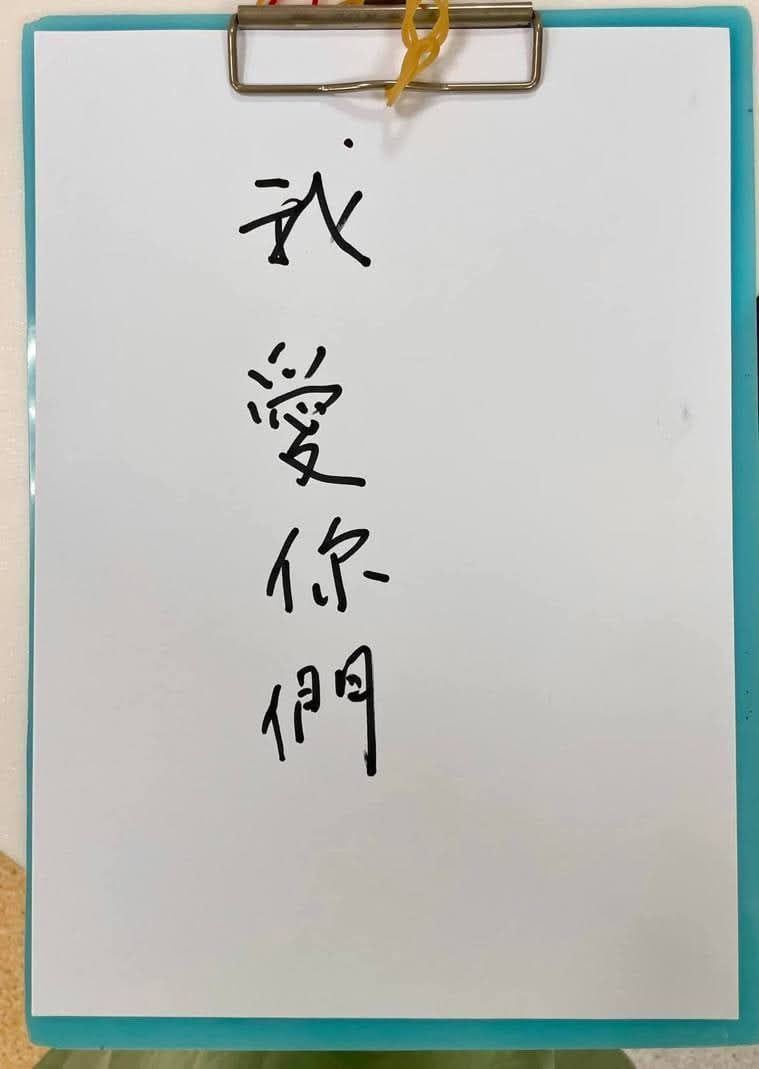 我愛你們